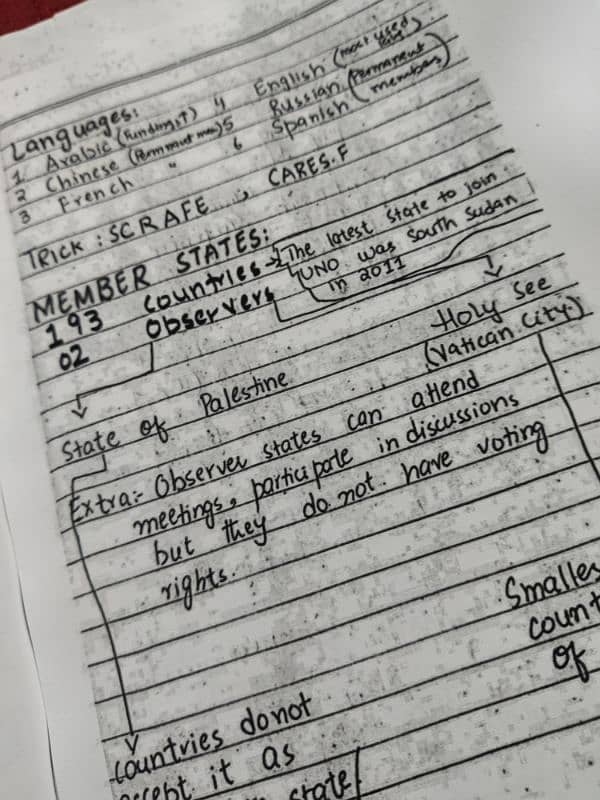 Languages:
1 Arabic
2 Chinese
3 French "
4 English (most used
5 Russian (Permanent
6 Spanish member)
TRICK : SCRAFE , CARES.F
MEMBER STATES:
193 countries → The latest state to join
UNO was South Sudan
in 2011
02 Observers
State of Palestine
Holy See
(Vatican City)
Extra:- Observer states can attend
meetings, participate in discussions
but they do not have voting
rights.
Smalles
count
of
countries donot
accept it as
state